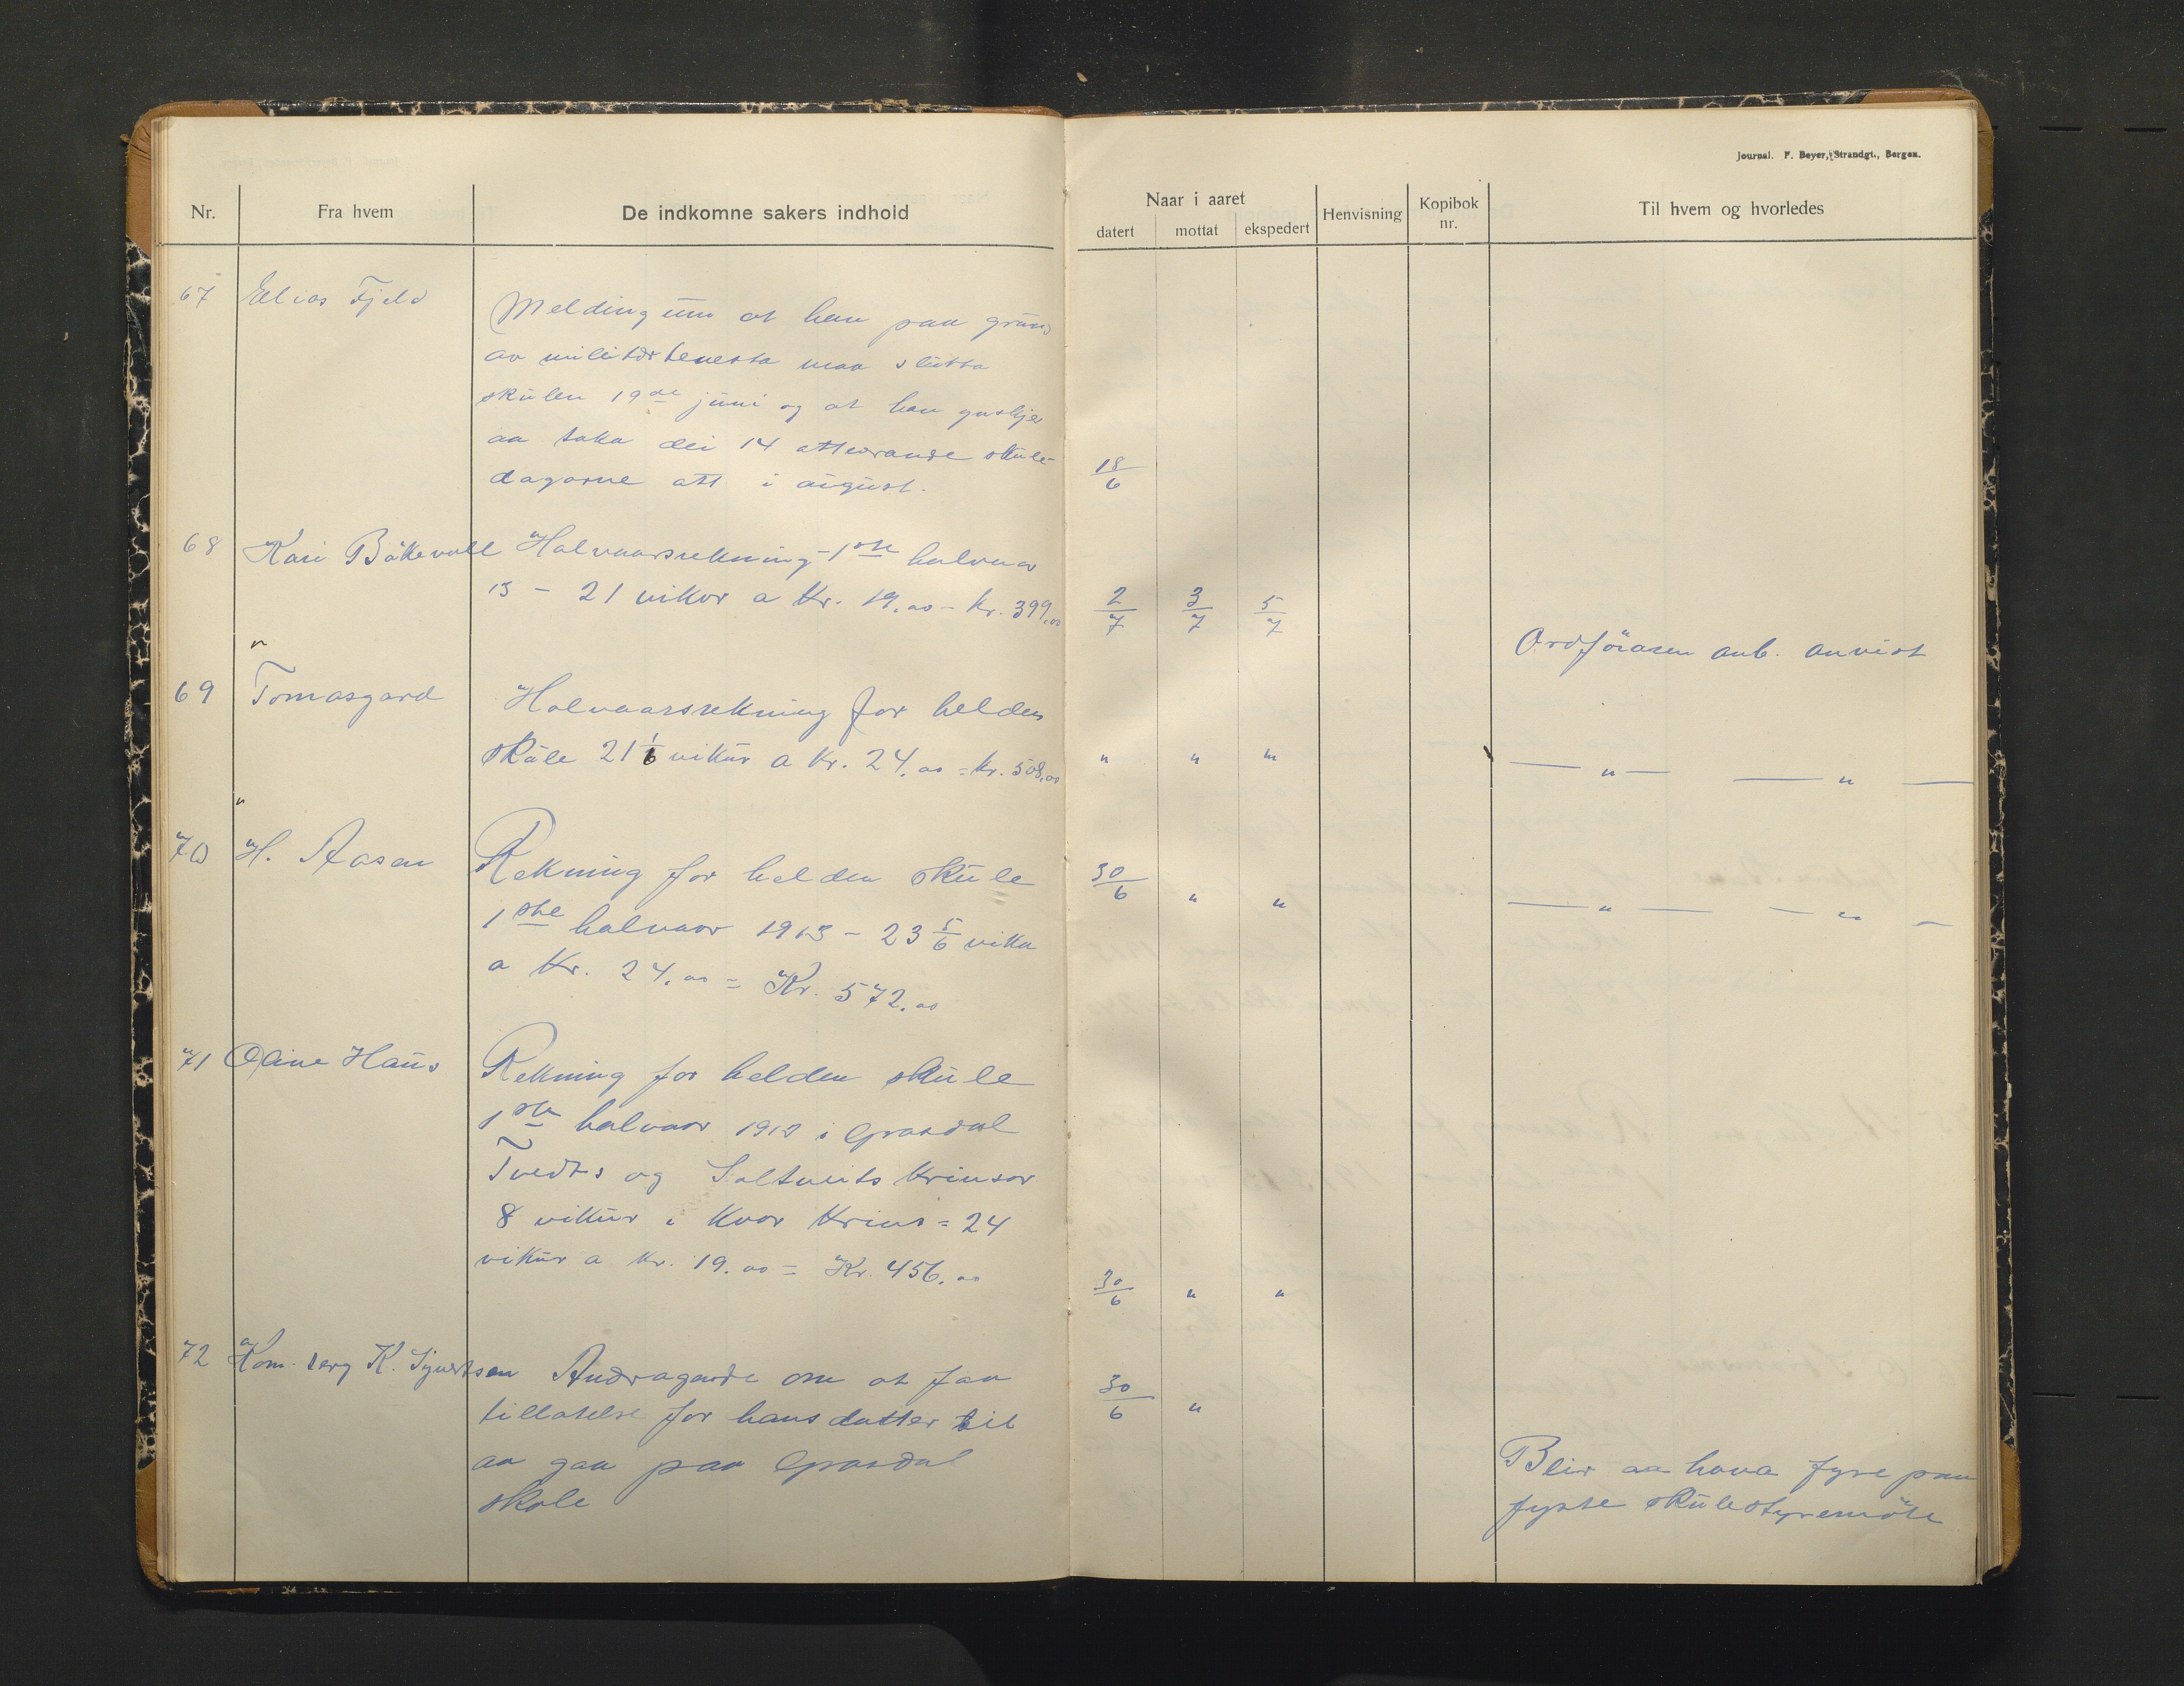 Journal. F. Beyer, Strandgt., Bergen.
Nr. Fra hvem De indkomne sakers indhold
Naar i aaret
datert mottat ekspedert Henvisning Kopibok nr. Til hvem og hvorledes
67 Elias Fjeld Melding um at han paa grund
av militærtenesta maa slutta
skulen 19de juni og at han ynskjer
aa taka dei 14 attverande skule-
dagarne att i august. 18/6
68 Kari Bökevoll Halvaarsrekning 1ste halvaar
13 - 21 vikor a kr. 19.00 - kr. 399.00 2/7 3/7 5/7
Ordföraren anb. anvist
69 Tomasgard Halvaarsrekning for helden
skule 21 1/6 vikur a kr. 24.00 = kr. 508.00 " " " — " — — " —
70 H. Aasen Rekning for helden skule
1ste halvaar 1913 - 23 5/6 vika
a kr. 24.00 = Kr. 572.00 30/6 " " — " — — " —
71 Oline Haus Rekning for helden skule
1ste halvaar 1913 i Grasdal
Tvedts og Saltveits krinsar
8 vikur i kvar krins = 24
vikur a kr. 19.00 = Kr. 456.00 30/6 " "
72 Kom. serg K. Sjurtsen Andragande om at faa
tillatelse for hans datter til
aa gaa paa Grasdal
skole 30/6 "
Blir aa hava fyre paa
fyste skulestyremöte